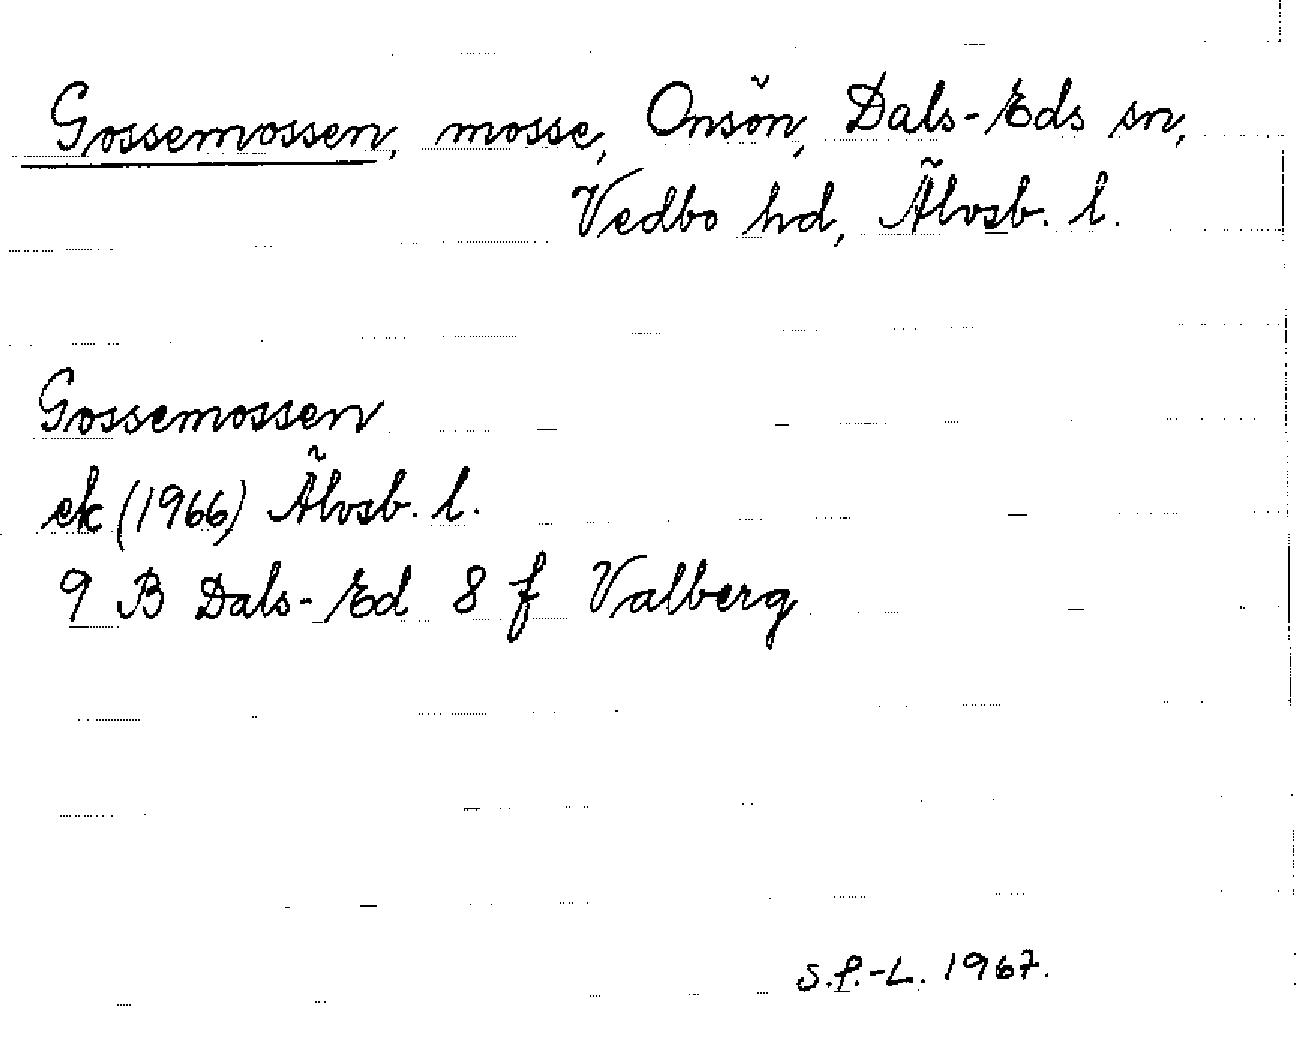 Gossemossen, mosse, Onsön, Dals-Eds sn,
Vedbo hd, Älvsb. l.
Gossemossen
ek (1966) Älvsb. l.
9 B Dals-Ed 8 f Valberg
S.P.-L. 1967.